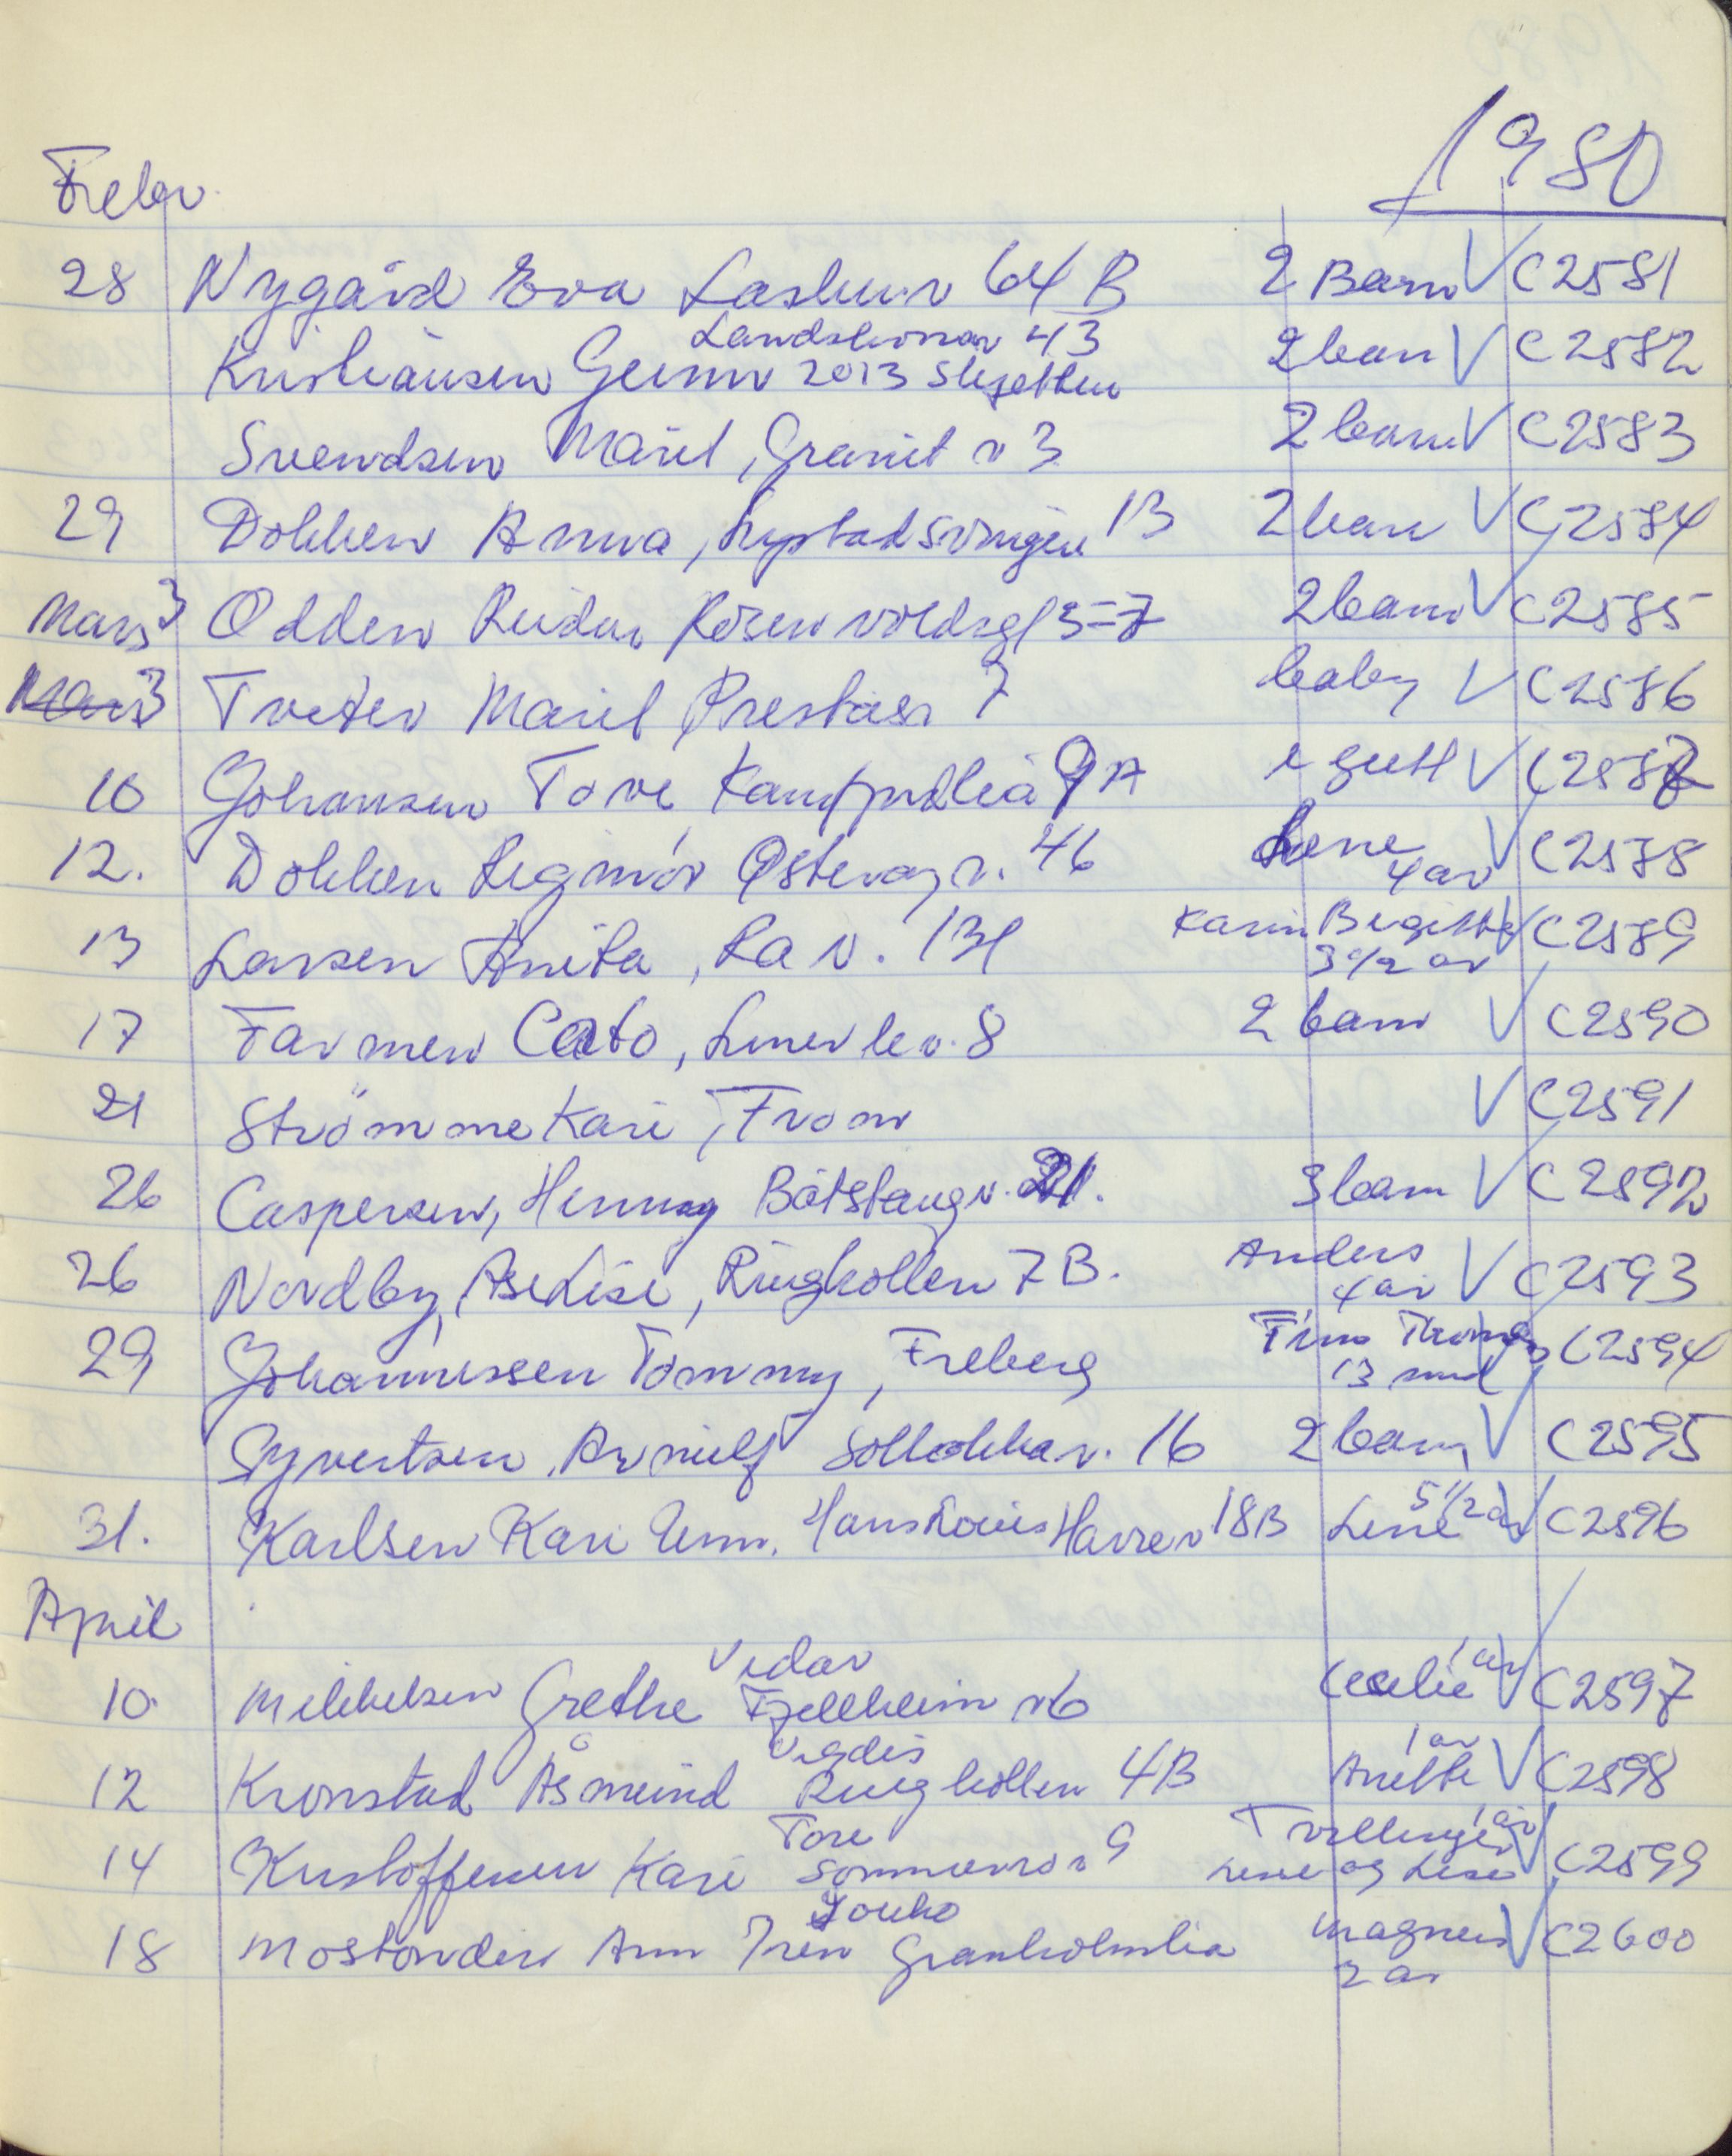 1980
Febr.
28 Nygård Eva 64 B 2 Barn V C2581
Landstronav 43
Kristiansen Gunnv 2013 Skjetten 2 barn V C2582
Svendsen Marit, Granit v 3 2 barn V C2583
29 Dokken Anna, 1B 2 barn V C2584
Mars 3 Odden Reidun Rosenvoldsgt 5-7 2 barn V C2585
Mars 3 Tveter Marit Preståsv 7 baby V C2586
10 Johansen Tove 9A 1 gutt V C2587
12. Dokken Ragnar Østeng v. 46 Lene 4 år V C2578
13 Larsen Anita, Ra v. 131 Karin Birgitte 3 1/2 år V C2589
17 Farmen Cato, Linerle v. 8 2 barn V C2590
21 Strömme Kari, From V C2591
26 Caspersen, Henny Båtstangv. 21. 3 barn V C2592
26 Nordby, Åse Lise, Ringkollen 7B. Anders 4 år V C2593
29 Johannessen Tommy, Freberg Thomas 13 mnd V C2594
Syvertsen, Arnulf Sollökkav. 16 2 barn V C2595
31. Karlsen Kari Unn. 18B Line 5 1/2 år V C2596
April
Vidar
10 Mikkelsen Grethe Fjellheim v 6 Cecilie 1 år V C2597
Vigdis 1 år
12 Kronstad Åsmund Ringkollen 4B Anette V C2598
Tore Tvillinger 1 år
14 Kristoffersen Kari Sommerrov 9 Lene og Lise V C2599
Jouko
18 Mostonden Ann Iren Granholmlia Magnus V C2600
2 år